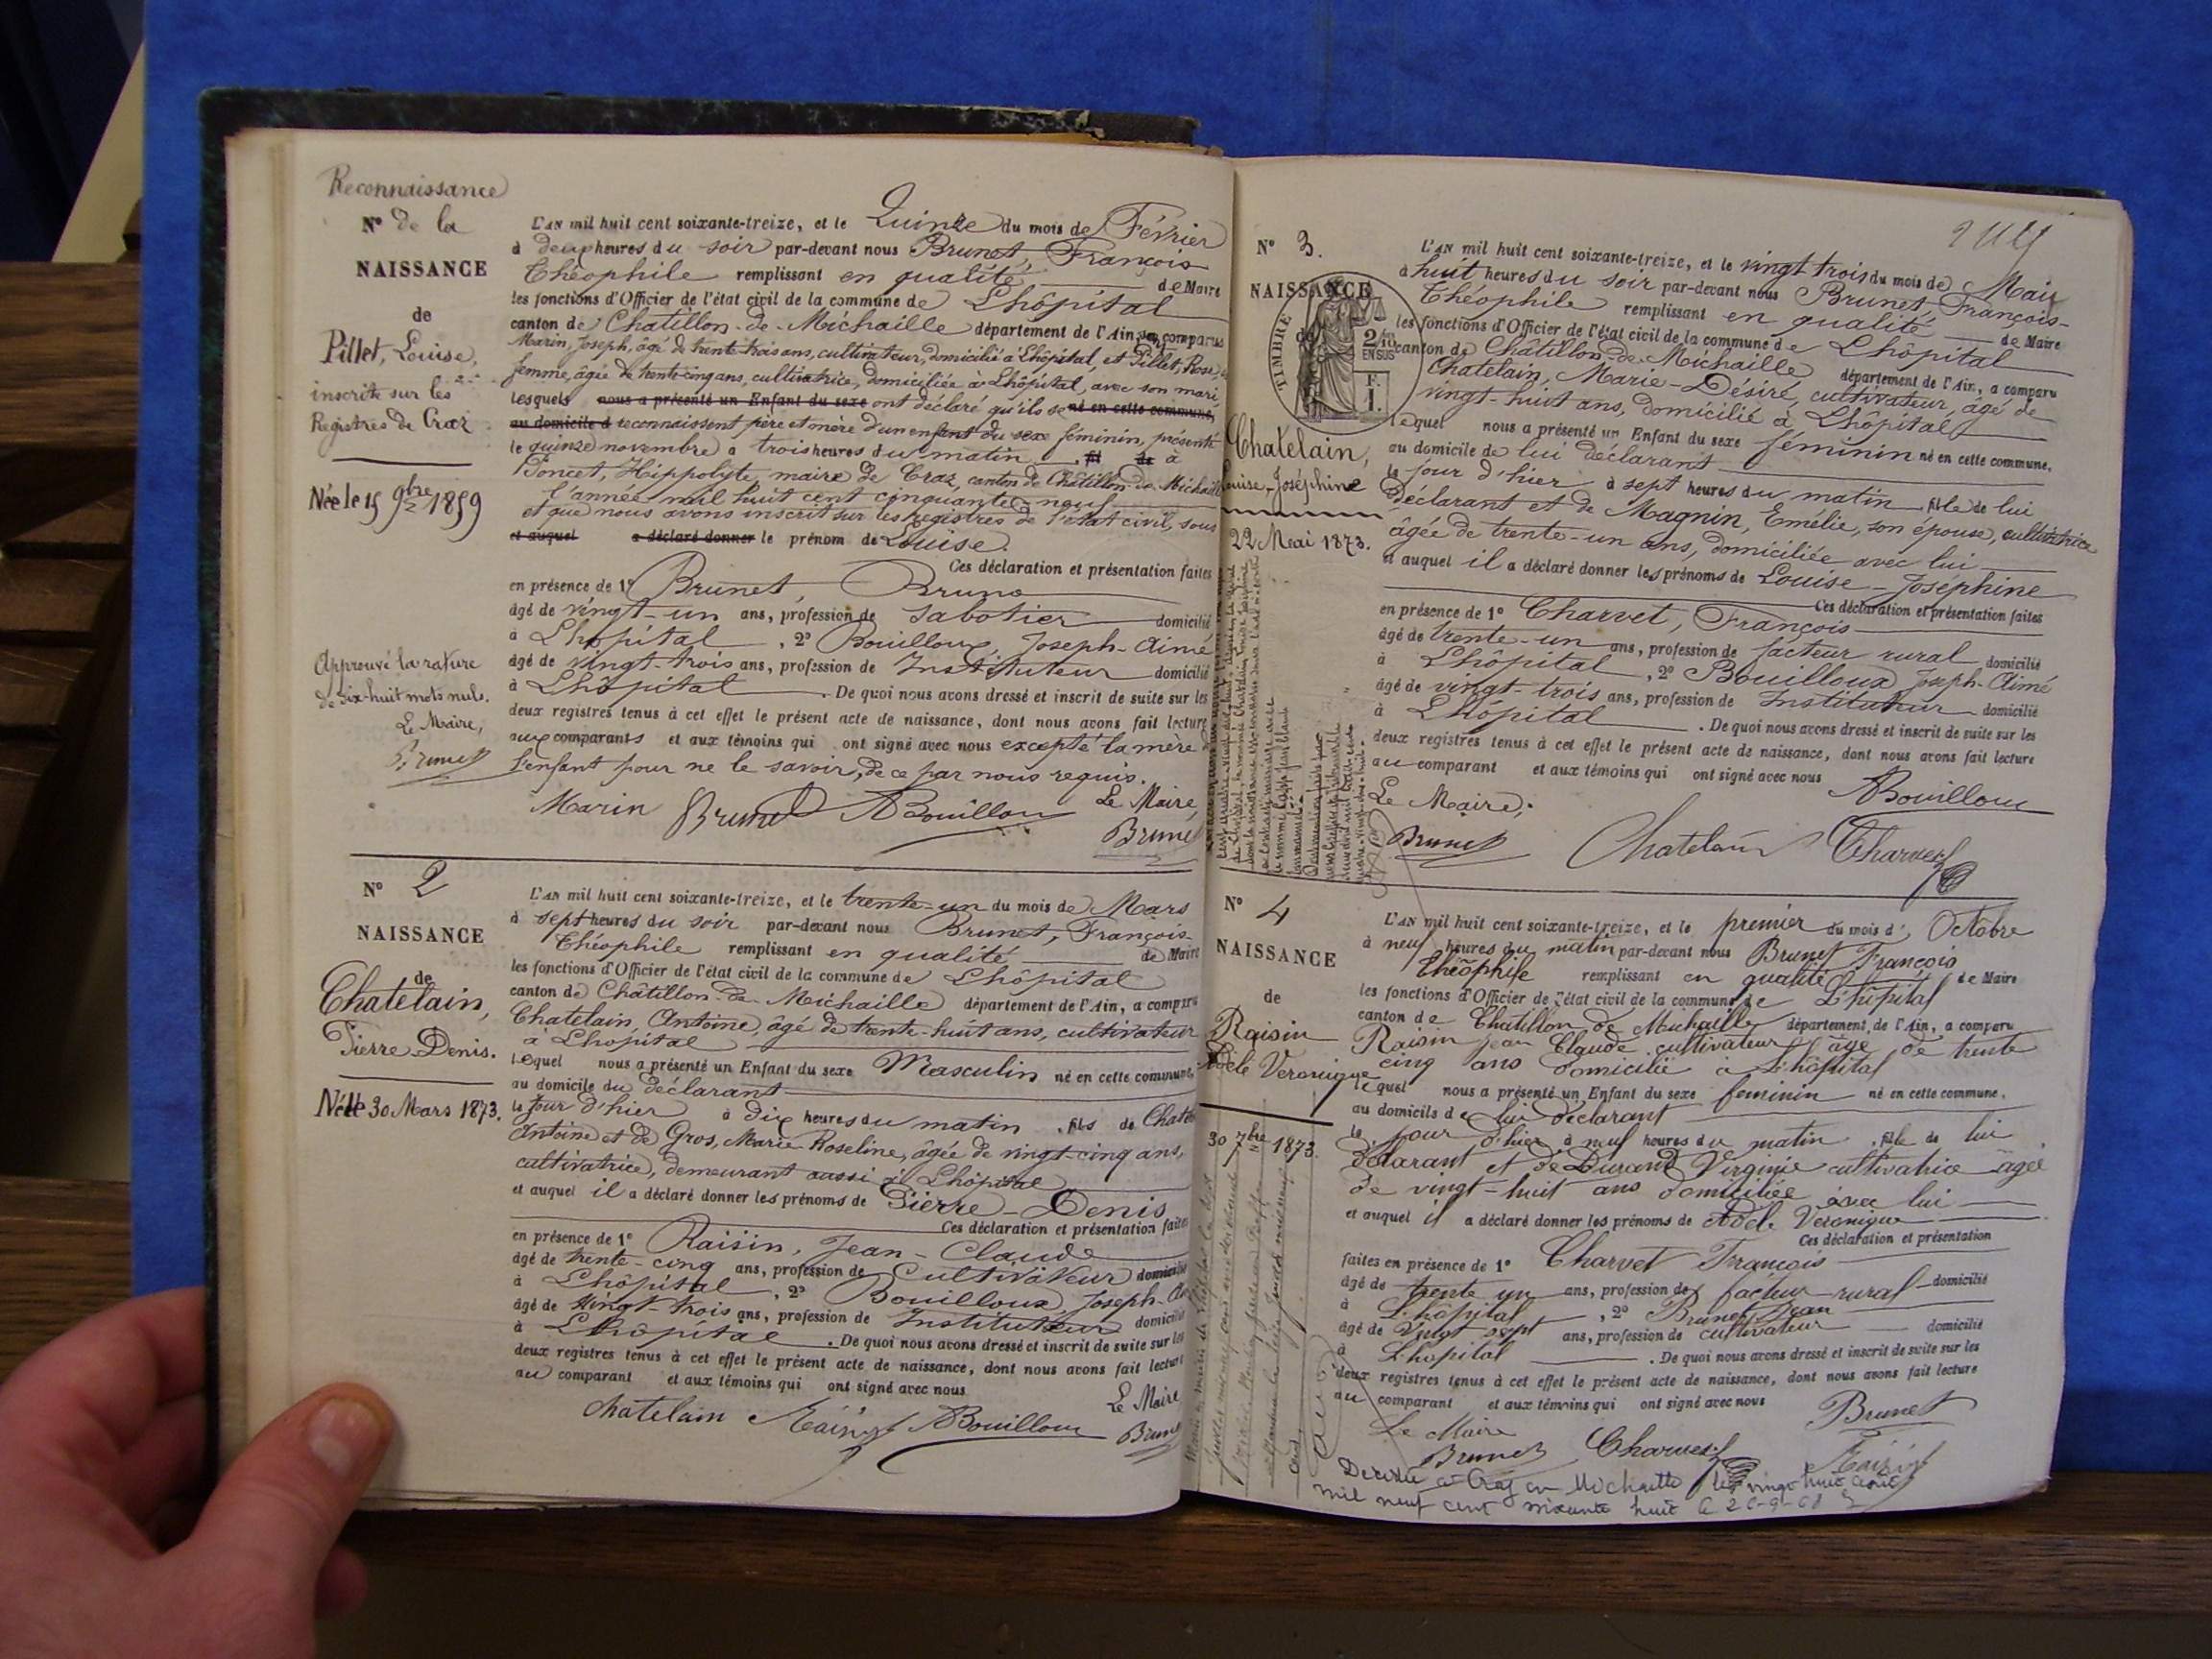 Reconnaissance
N° de la
NAISSANCE
de
Pillet, Louise,
inscrite sur les
Registres de Craz
Née le 15 9bre 1859
Approuvé la rature
de dix-huit mots nuls.
Le Maire,
Brunet
L'AN mil huit cent soixante-treize, et le Quinze du mois de Février
à deux heures du soir par-devant nous Brunet, François
Théophile remplissant en qualité de Maire
les fonctions d'Officier de l'état civil de la commune de Lhôpital
canton de Chatillon-de-Michaille département de l'Ain, comparus
Marin, Joseph, âgé de trente trois ans, cultivateur, domicilié à Lhôpital, et Pillet, Rose, sa
femme, âgée de trente-cinq ans, cultivatrice, domiciliée à Lhôpital, avec son mari,
lesquels nous a présenté un Enfant du sexe ont déclaré qu'ils se né en cette commune,
au domicile d reconnaissent père et mère d'un enfant du sexe féminin, présenté
le quinze novembre à trois heures du matin fil de à
Poncet, Hippolyte, maire de Craz, canton de Châtillon-de-Michaille
l'année mil huit cent cinquante-neuf
et que nous avons inscrit sur les Registres de l'état civil, sous
et auquel a déclaré donner le prénom de Louise.
Ces déclaration et présentation faites
en présence de 1° Brunet, Bruno
âgé de vingt-un ans, profession de sabotier domicilié
à Lhôpital, 2° Bouilloux, Joseph-Aimé
âgé de vingt-trois ans, profession de Instituteur domicilié
à Lhôpital. De quoi nous avons dressé et inscrit de suite sur les
deux registres tenus à cet effet le présent acte de naissance, dont nous avons fait lecture
aux comparants et aux témoins qui ont signé avec nous excepté la mère de
l'enfant pour ne le savoir, de ce par nous requis.
Marin Brunet ABouilloux Le Maire,
Brunet
N° 2
NAISSANCE
de
Chatelain,
Pierre-Denis.
Né le 30 Mars 1873.
L'AN mil huit cent soixante-treize, et le trente-un du mois de Mars
à sept heures du soir par-devant nous Brunet, François-
Théophile remplissant en qualité de Maire
les fonctions d'Officier de l'état civil de la commune de Lhôpital
canton de Châtillon-de-Michaille département de l'Ain, a comparu
Chatelain, Antoine, âgé de trente-huit ans, cultivateur
à Lhôpital
lequel nous a présenté un Enfant du sexe Masculin né en cette commune,
au domicile du déclarant
le Jour d'hier à dix heures du matin, fils de Chatelain
Antoine et de Gros, Marie Roseline, âgée de vingt-cinq ans,
cultivatrice, demeurant aussi à Lhôpital
et auquel il a déclaré donner les prénoms de Pierre-Denis
Ces déclaration et présentation faites
en présence de 1° Raisin, Jean-Claude
âgé de trente-cinq ans, profession de Cultivateur domicilié
à Lhôpital, 2° Bouilloux, Joseph-
âgé de vingt-trois ans, profession de Instituteur domicilié
à Lhôpital. De quoi nous avons dressé et inscrit de suite sur les
deux registres tenus à cet effet le présent acte de naissance, dont nous avons fait lecture
au comparant et aux témoins qui ont signé avec nous
Le Maire
Chatelain Raisin ABouilloux Brunet
N° 3.
NAISSANCE
de
TIMBRE
2/10
EN SUS
F.
1.
Chatelain,
Louise-Joséphine
22 Mai 1873.
L'AN mil huit cent soixante-treize, et le vingt trois du mois de Mai
à huit heures du soir par-devant nous Brunet, François-
Théophile remplissant en qualité de Maire
les fonctions d'Officier de l'état civil de la commune de Lhôpital
canton de Châtillon-de-Michaille département de l'Ain, a comparu
Chatelain, Marie-Désiré, cultivateur, âgé de
vingt-huit ans, domicilié à Lhôpital
lequel nous a présenté un Enfant du sexe féminin né en cette commune,
au domicile de lui déclarant
le jour d'hier à sept heures du matin, fille de lui
déclarant et de Magnin, Emélie, son épouse, cultivatrice
âgée de trente-un ans, domiciliée avec lui
et auquel il a déclaré donner les prénoms de Louise-Joséphine
Ces déclaration et présentation faites
en présence de 1° Charvet, François
âgé de trente-un ans, profession de facteur rural domicilié
à Lhôpital, 2° Bouilloux, Joseph-Aimé
âgé de vingt-trois ans, profession de Instituteur domicilié
à Lhôpital. De quoi nous avons dressé et inscrit de suite sur les
deux registres tenus à cet effet le présent acte de naissance, dont nous avons fait lecture
au comparant et aux témoins qui ont signé avec nous
ABouilloux
Le Maire,
Brunet Chatelain Charvet
N° 4
NAISSANCE
de
Raisin
Adèle Veronique
30 7bre 1873.
L'AN mil huit cent soixante-treize, et le premier du mois d'Octobre
à neuf heures du matin par-devant nous Brunet François
Théophile remplissant en qualité de Maire
les fonctions d'Officier de l'état civil de la commune de L'hôpital
canton de Chatillon de Michaille département de l'Ain, a comparu
Raisin Jean Claude cultivateur âgé de trente
cinq ans domicilié à L'hôpital
lequel nous a présenté un Enfant du sexe feminin né en cette commune,
au domicile de lui déclarant
le jour d'hier à neuf heures du matin, fille de lui
déclarant et de Durand Virginie cultivatrice agée
de vingt-huit ans domiciliée avec lui
et auquel il a déclaré donner les prénoms de Adèle Veronique
Ces déclaration et présentation
faites en présence de 1° Charvet François
âgé de trente un ans, profession de facteur rural domicilié
à L'hôpital, 2° Brunet, Jean
âgé de Vingt sept ans, profession de cultivateur domicilié
à L'hopital. De quoi nous avons dressé et inscrit de suite sur les
deux registres tenus à cet effet le présent acte de naissance, dont nous avons fait lecture
au comparant et aux témoins qui ont signé avec nous
Brunet
Le Maire
Brunet Charvet Raisin
Décédée à Craz en Michaille le vingt huit août
mil neuf cent soixante huit